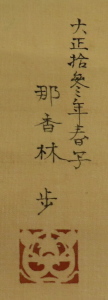 大正拾参年春写
那香林
歩